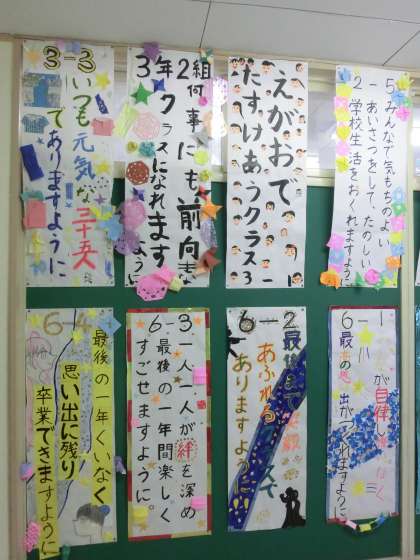 5 みんなで気もちのよい
ー あいさつをして、たのしい
2 学校生活をおくれますように
えがおで
たすけあうクラス3
2組何事にも前向き
3年クラスになれますように
3-3
いつも元気な三十五人
でありますように
6-1
が自律
最高の思い出がつくれますように
6-2
最後まで
あふれる
ありますように
3 一人一人が絆を深め
- 最後の一年間楽しく
6 すごせますように。
6-4
最後の一年くいなく
思い出に残り
卒業できますように